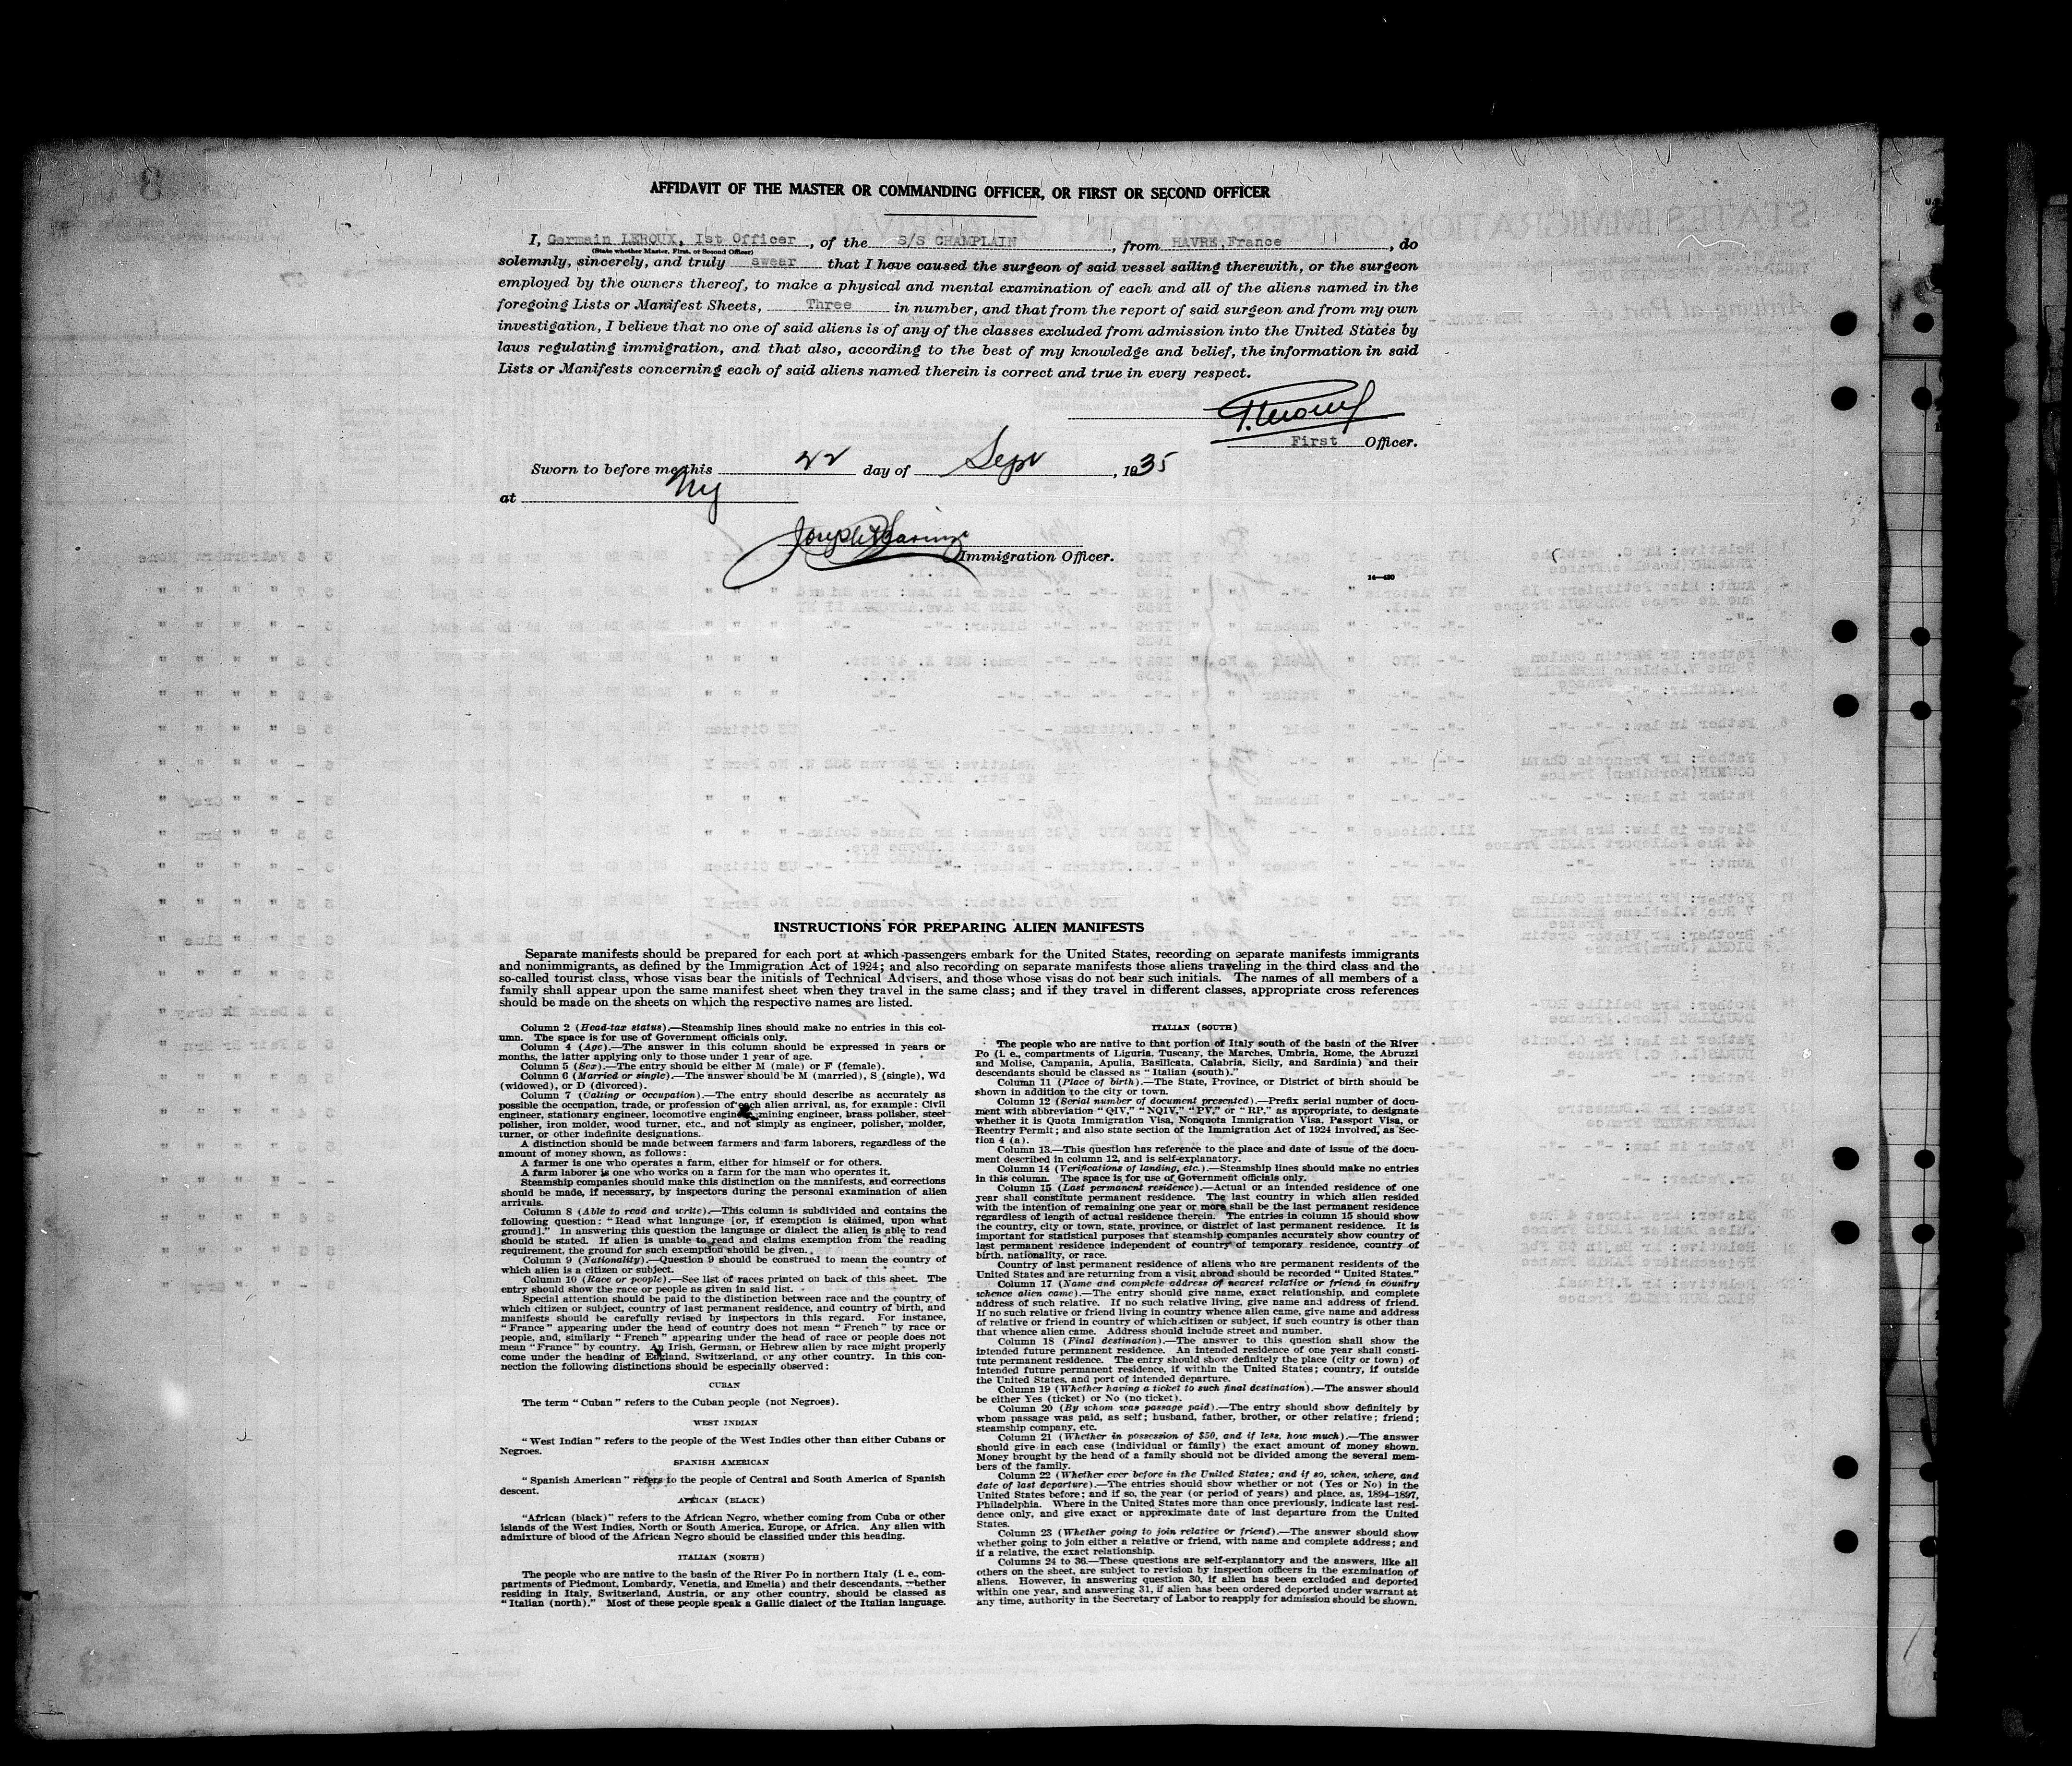 AFFIDAVIT OF THE MASTER OR COMMANDING OFFICER, OR FIRST OR SECOND OFFICER
I, Germain LEROUX, Ist Officer, of the S/S CHAMPLAIN, from HAVRE, France, do
(State whether Master, First, or Second Officer)
solemnly, sincerely, and truly swear that I have caused the surgeon of said vessel sailing therewith, or the surgeon
employed by the owners thereof, to make a physical and mental examination of each and all of the aliens named in the
foregoing Lists or Manifest Sheets, Three in number, and that from the report of said surgeon and from my own
investigation, I believe that no one of said aliens is of any of the classes excluded from admission into the United States by
laws regulating immigration, and that also, according to the best of my knowledge and belief, the information in said
Lists or Manifests concerning each of said aliens named therein is correct and true in every respect.
First Officer.
Sworn to before me this 22 day of Sept, 1935
at NY
Immigration Officer.
14—430
INSTRUCTIONS FOR PREPARING ALIEN MANIFESTS
Separate manifests should be prepared for each port at which passengers embark for the United States, recording on separate manifests immigrants
and nonimmigrants, as defined by the Immigration Act of 1924; and also recording on separate manifests those aliens traveling in the third class and the
so-called tourist class, whose visas bear the initials of Technical Advisers, and those whose visas do not bear such initials. The names of all members of a
family shall appear upon the same manifest sheet when they travel in the same class; and if they travel in different classes, appropriate cross references
should be made on the sheets on which the respective names are listed.
Column 2 (Head-tax status).—Steamship lines should make no entries in this col-
umn. The space is for use of Government officials only.
Column 4 (Age).—The answer in this column should be expressed in years or
months, the latter applying only to those under 1 year of age.
Column 5 (Sex).—The entry should be either M (male) or F (female).
Column 6 (Married or single).—The answer should be M (married), S (single), Wd
(widowed), or D (divorced).
Column 7 (Calling or occupation).—The entry should describe as accurately as
possible the occupation, trade, or profession of each alien arrival, as, for example: Civil
engineer, stationary engineer, locomotive engineer, mining engineer, brass polisher, steel
polisher, iron molder, wood turner, etc., and not simply as engineer, polisher, molder,
turner, or other indefinite designations.
A distinction should be made between farmers and farm laborers, regardless of the
amount of money shown, as follows:
A farmer is one who operates a farm, either for himself or for others.
A farm laborer is one who works on a farm for the man who operates it.
Steamship companies should make this distinction on the manifests, and corrections
should be made, if necessary, by inspectors during the personal examination of alien
arrivals.
Column 8 (Able to read and write).—This column is subdivided and contains the
following question: "Read what language [or, if exemption is claimed, upon what
ground]." In answering this question the language or dialect the alien is able to read
should be stated. If alien is unable to read and claims exemption from the reading
requirement, the ground for such exemption should be given.
Column 9 (Nationality).—Question 9 should be construed to mean the country of
which alien is a citizen or subject.
Column 10 (Race or people).—See list of races printed on back of this sheet. The
entry should show the race or people as given in said list.
Special attention should be paid to the distinction between race and the country of
which citizen or subject, country of last permanent residence, and country of birth, and
manifests should be carefully revised by inspectors in this regard. For instance,
"France" appearing under the head of country does not mean "French" by race or
people, and, similarly "French" appearing under the head of race or people does not
mean "France" by country. An Irish, German, or Hebrew alien by race might properly
come under the heading of England, Switzerland, or any other country. In this con-
nection the following distinctions should be especially observed:
CUBAN
The term "Cuban" refers to the Cuban people (not Negroes).
WEST INDIAN
"West Indian" refers to the people of the West Indies other than either Cubans or
Negroes.
SPANISH AMERICAN
"Spanish American" refers to the people of Central and South America of Spanish
descent.
AFRICAN (BLACK)
"African (black)" refers to the African Negro, whether coming from Cuba or other
islands of the West Indies, North or South America, Europe, or Africa. Any alien with
admixture of blood of the African Negro should be classified under this heading.
ITALIAN (NORTH)
The people who are native to the basin of the River Po in northern Italy (i. e., com-
partments of Piedmont, Lombardy, Venetia, and Emelia) and their descendants, whether
residing in Italy, Switzerland, Austria, or any other country, should be classed as
"Italian (north)." Most of these people speak a Gallic dialect of the Italian language.
ITALIAN (SOUTH)
The people who are native to that portion of Italy south of the basin of the River
Po (i. e., compartments of Liguria, Tuscany, the Marches, Umbria, Rome, the Abruzzi
and Molise, Campania, Apulia, Basilicata, Calabria, Sicily, and Sardinia) and their
descendants should be classed as "Italian (south)."
Column 11 (Place of birth).—The State, Province, or District of birth should be
shown in addition to the city or town.
Column 12 (Serial number of document presented).—Prefix serial number of docu-
ment with abbreviation "QIV," "NQIV," "PV," or "RP," as appropriate, to designate
whether it is Quota Immigration Visa, Nonquota Immigration Visa, Passport Visa, or
Reentry Permit; and also state section of the Immigration Act of 1924 involved, as Sec-
tion 4 (a).
Column 13.—This question has reference to the place and date of issue of the docu-
ment described in column 12, and is self-explanatory.
Column 14 (Verifications of landing, etc.).—Steamship lines should make no entries
in this column. The space is for use of Government officials only.
Column 15 (Last permanent residence).—Actual or an intended residence of one
year shall constitute permanent residence. The last country in which alien resided
with the intention of remaining one year or more shall be the last permanent residence
regardless of length of actual residence therein. The entries in column 15 should show
the country, city or town, state, province, or district of last permanent residence. It is
important for statistical purposes that steamship companies accurately show country of
last permanent residence independent of country of temporary residence, country of
birth, nationality, or race.
Country of last permanent residence of aliens who are permanent residents of the
United States and are returning from a visit abroad should be recorded "United States."
Column 17 (Name and complete address of nearest relative or friend in country
whence alien came).—The entry should give name, exact relationship, and complete
address of such relative. If no such relative living, give name and address of friend.
If no such relative or friend living in country whence alien came, give name and address
of relative or friend in country of which citizen or subject, if such country is other than
that whence alien came. Address should include street and number.
Column 18 (Final destination).—The answer to this question shall show the
intended future permanent residence. An intended residence of one year shall consti-
tute permanent residence. The entry should show definitely the place (city or town) of
intended future permanent residence, if within the United States; country, if outside
the United States, and port of intended departure.
Column 19 (Whether having a ticket to such final destination).—The answer should
be either Yes (ticket) or No (no ticket).
Column 20 (By whom was passage paid).—The entry should show definitely by
whom passage was paid, as self; husband, father, brother, or other relative; friend;
steamship company, etc.
Column 21 (Whether in possession of $50, and if less, how much).—The answer
should give in each case (individual or family) the exact amount of money shown.
Money brought by the head of a family should not be divided among the several mem-
bers of the family.
Column 22 (Whether ever before in the United States; and if so, when, where, and
date of last departure).—The entries should show whether or not (Yes or No) in the
United States before; and if so, the year (or period of years) and place, as, 1894-1897,
Philadelphia. Where in the United States more than once previously, indicate last resi-
dence only, and give exact or approximate date of last departure from the United
States.
Column 23 (Whether going to join relative or friend).—The answer should show
whether going to join either a relative or friend, with name and complete address; and
if a relative, the exact relationship.
Columns 24 to 36.—These questions are self-explanatory and the answers, like all
others on the sheet, are subject to revision by inspection officers in the examination of
aliens. However, in answering question 30, if alien has been excluded and deported
within one year, and answering 31, if alien has been ordered deported under warrant at
any time, authority in the Secretary of Labor to reapply for admission should be shown.